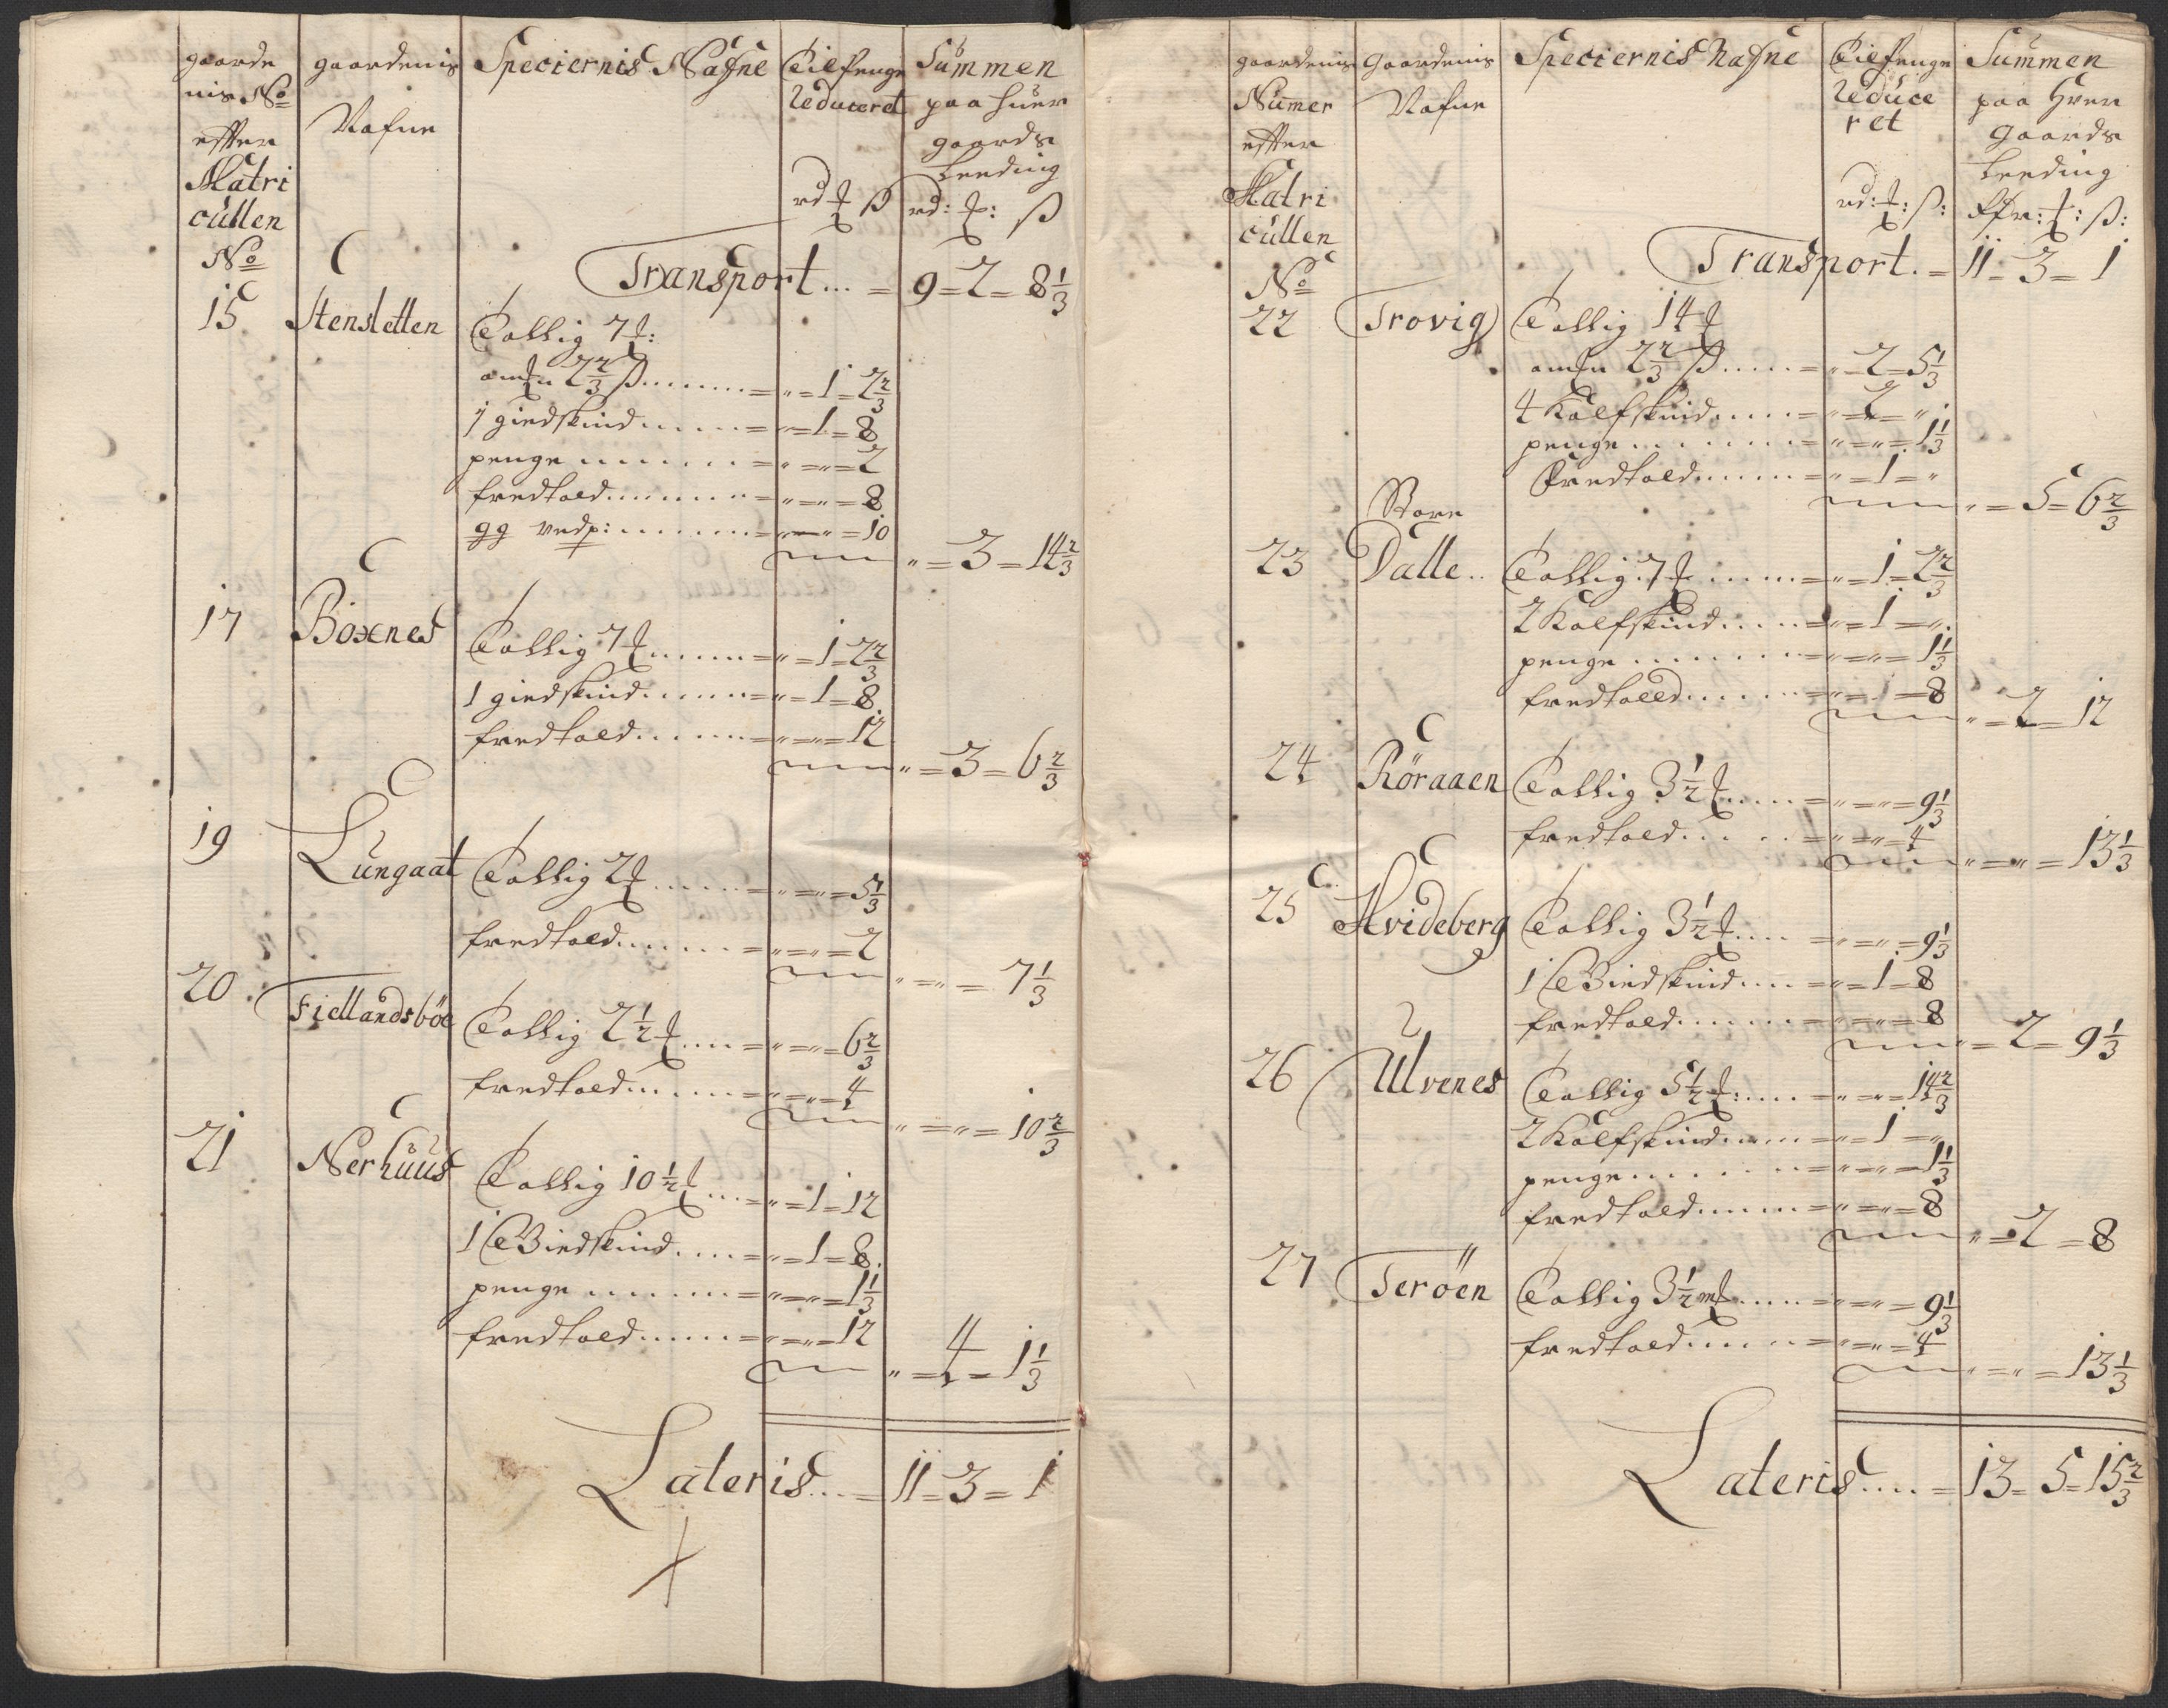 gaarde nis No effter Matri cullen No
gaardenis Nafne
Speciernis Nafne
Til Penge Reduceret rd ß
Summen paa huer gaards Leeding rd: ß
Transport ... = 9 = 2 = 8 1/3
15 Stensletten
Tallig 7
2 2/3 ß ....... = " = 1 = 2 2/3
1 giedskind ...... = " = 1 = 8
penge ....... = " = " = 2
fredtold ........ = " = " = 8
gg vedp: ....... = " = " = 10
" = 3 = 14 2/3
17 Boxnes
Tallig 7 ....... = " = 1 = 2 2/3
1 giedskind ...... = " = 1 = 8
fredtold ...... = " = " = 12
" = 3 = 6 2/3
19 Lungaat
Tallig 2 ...... = " = " = 5 1/3
fredtold ...... = " = " = 2
" = " = 7 1/3
20 Fiellandsböe
Tallig 2 1/2 .... = " = " = 6 2/3
fredtold ...... = " = " = 4
" = " = 10 2/3
21 Nerhuus
Tallig 10 1/2 ... = " = 1 = 12
1 Giedskind .... = " = 1 = 8
penge ...... = " = " = 1 1/3
fredtold ...... = " = " = 12
" = 4 = 1 1/3
Lateris ... = 11 = 3 = 1
gaardenis Numer effter Matri cullen No
Gaardenis Nafne
Speciernis Nafne
Til Penge Reduce ret rd: ß:
Summen paa Hver gaards Leeding ß:
Transport. = 11 = 3 = 1
22 Trovig
Tallig 14
2 2/3 ß ..... = " = 2 = 5 1/3
4 Kalfskind ..... = " = 2 = "
penge ....... = " = " = 1 1/3
Fredtold ...... = " = 1 = "
" = 5 = 6 2/3
23 Store Dalle ..
Tallig 7 ...... = " = 1 = 2 2/3
2 Kalfskind ..... = " = 1 = "
penge ....... = " = " = 1 1/3
fredtold ...... = " = " = 8
" = 2 = 12
24 Röraaen
Tallig 3 1/2 ..... = " = " = 9 1/3
fredtold ..... = " = " = 4
" = " = 13 1/3
25 Hvideberg
Tallig 3 1/2 .... = " = " = 9 1/3
1 Giedskind ... = " = 1 = 8
fredtold ...... = " = " = 8
" = 2 = 9 1/3
26 Ulvenes
Tallig 5 1/2 : .... = " = " = 14 2/3
2 Kalfskind ..... = " = 1 = "
penge ...... = " = " = 1 1/3
fredtold ...... = " = " = 8
" = 2 = 8
27 Teröen
Tallig 3 1/2 ..... = " = " = 9 1/3
fredtold ..... = " = " = 4
" = " = 13 1/3
Lateris .... = 13 = 5 = 15 2/3